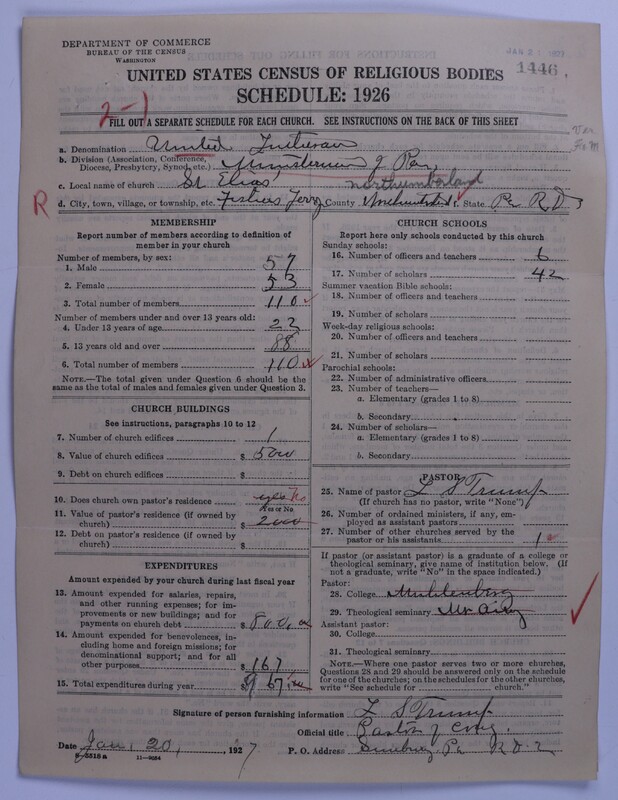 DEPARTMENT OF COMMERCE
BUREAU OF THE CENSUS
WASHINGTON
JAN 21 1927
1446
UNITED STATES CENSUS OF RELIGIOUS BODIES
SCHEDULE: 1926
2-1
FILL OUT A SEPARATE SCHEDULE FOR EACH CHURCH. SEE INSTRUCTIONS ON THE BACK OF THIS SHEET
a. Denomination United Lutheran
b. Division (Association, Conference, Diocese, Presbytery, Synod, etc.) Ministerium of Pa
c. Local name of church St Elias
northumberland
R
d. City, town, village, or township, etc. Fishers Ferry County State Pa R D
MEMBERSHIP
Report number of members according to definition of member in your church
Number of members, by sex:
1. Male 57
2. Female 53
3. Total number of members 110
Number of members under and over 13 years old:
4. Under 13 years of age 22
5. 13 years old and over 88
6. Total number of members 110
NOTE.—The total given under Question 6 should be the same as the total of males and females given under Question 3.
CHURCH BUILDINGS
See instructions, paragraphs 10 to 12
7. Number of church edifices 1
8. Value of church edifices $ 5000
9. Debt on church edifices $
10. Does church own pastor's residence yes No
Yes or No
11. Value of pastor's residence (if owned by church) $ 2000
12. Debt on pastor's residence (if owned by church) $
EXPENDITURES
Amount expended by your church during last fiscal year
13. Amount expended for salaries, repairs, and other running expenses; for improvements or new buildings; and for payments on church debt $ 800.00
14. Amount expended for benevolences, including home and foreign missions; for denominational support; and for all other purposes $ 167
15. Total expenditures during year $ 967.00
CHURCH SCHOOLS
Report here only schools conducted by this church
Sunday schools:
16. Number of officers and teachers 6
17. Number of scholars 42
Summer vacation Bible schools:
18. Number of officers and teachers
19. Number of scholars
Week-day religious schools:
20. Number of officers and teachers
21. Number of scholars
Parochial schools:
22. Number of administrative officers
23. Number of teachers—
a. Elementary (grades 1 to 8)
b. Secondary
24. Number of scholars—
a. Elementary (grades 1 to 8)
b. Secondary
PASTOR
25. Name of pastor L S Trump
(If church has no pastor, write "None")
26. Number of ordained ministers, if any, employed as assistant pastors
27. Number of other churches served by the pastor or his assistants 1
If pastor (or assistant pastor) is a graduate of a college or theological seminary, give name of institution below. (If not a graduate, write "No" in the space indicated.)
Pastor:
28. College Muhlenberg
29. Theological seminary Mt Airy
Assistant pastor:
30. College
31. Theological seminary
NOTE.—Where one pastor serves two or more churches, Questions 28 and 29 should be answered only on the schedule for one of the churches; on the schedules for the other churches, write "See schedule for church."
Signature of person furnishing information L S Trump
Official title Pastor of Cong.
Date Jan, 20, 1927
P. O. Address Sunbury Pa R. D. 2
8-5518a 11-9084